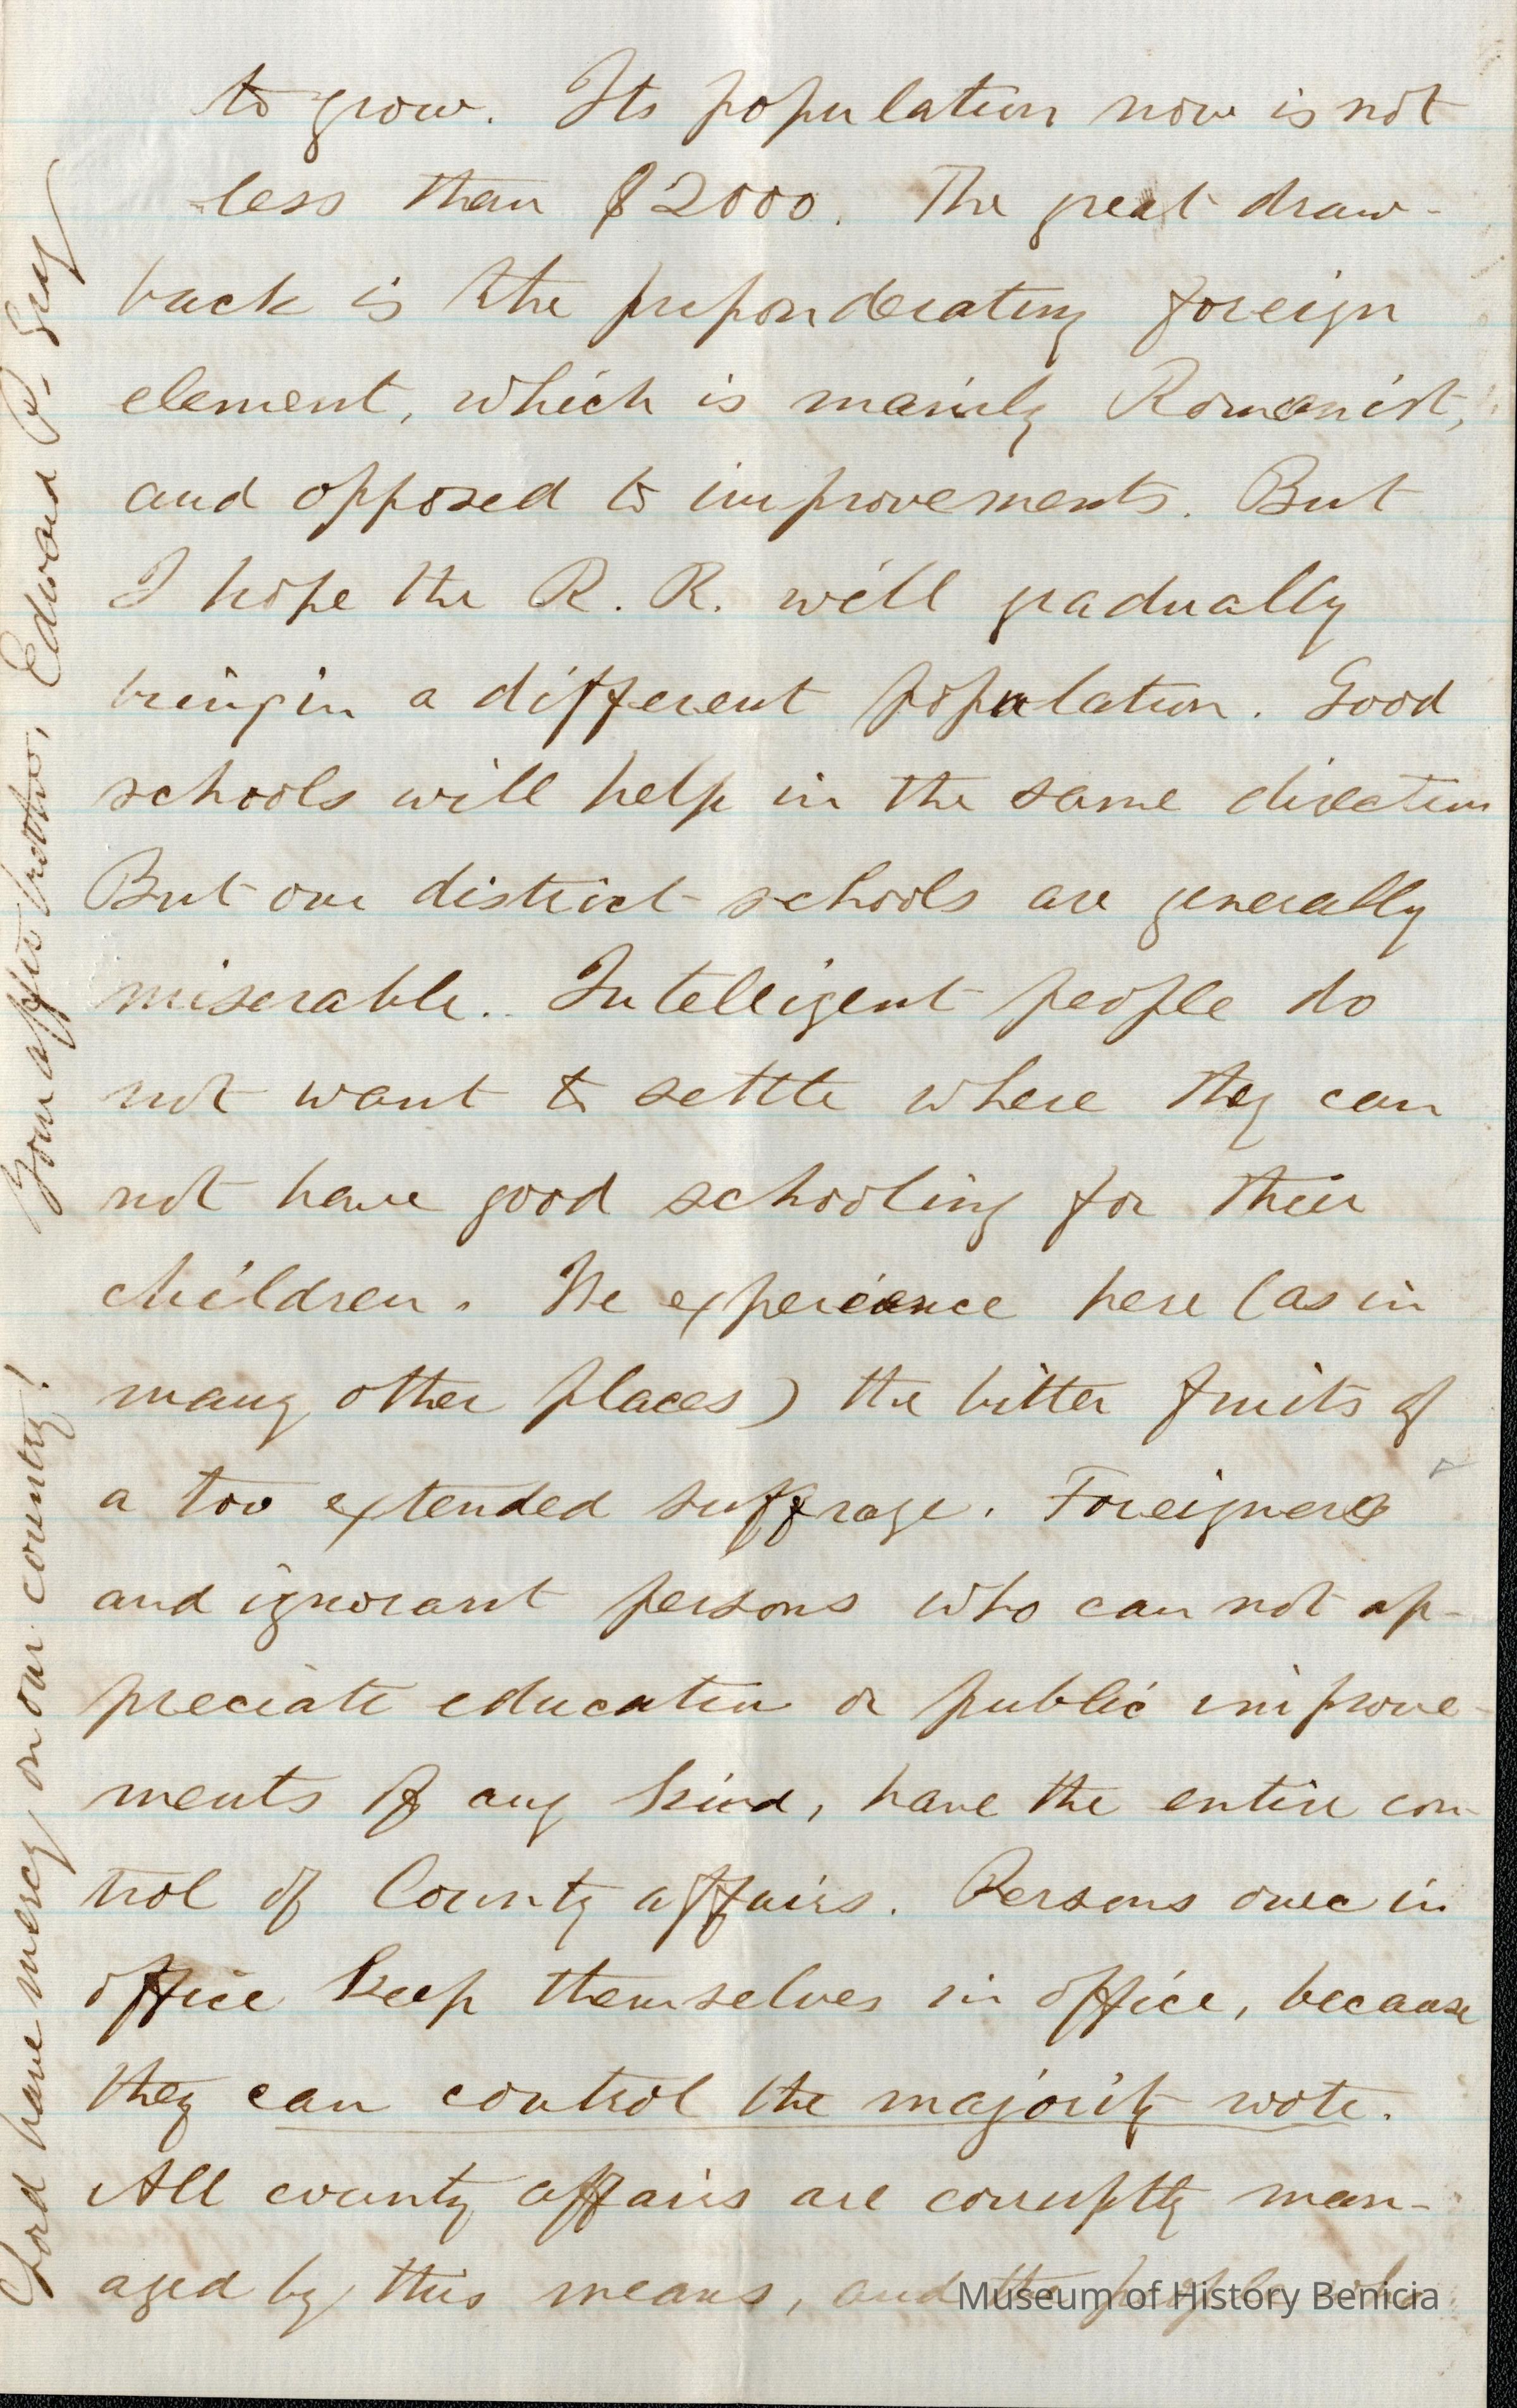 to grow. Its population now is not
less than $2000. The great draw-
back is the preponderating foreign
element, which is mainly Romanist,
and opposed to improvements. But
I hope the R. R. will gradually
bring in a different population. Good
schools will help in the same direction
But our district schools are generally
miserable. Intelligent people do
not want to settle where they can
not have good schooling for their
children. We experience here (as in
many other places) the bitter fruits of
a too extended suffrage. Foreigners
and ignorant persons who can not ap-
preciate education or public improve-
ments of any kind, have the entire con-
trol of County affairs. Persons once in
office keep themselves in office, because
they can control the majority vote.
All county affairs are corruptly man-
aged by this means, and the people who
Lord have mercy on our country!
Your affte brother, Edward P. Gray
Museum of History Benicia